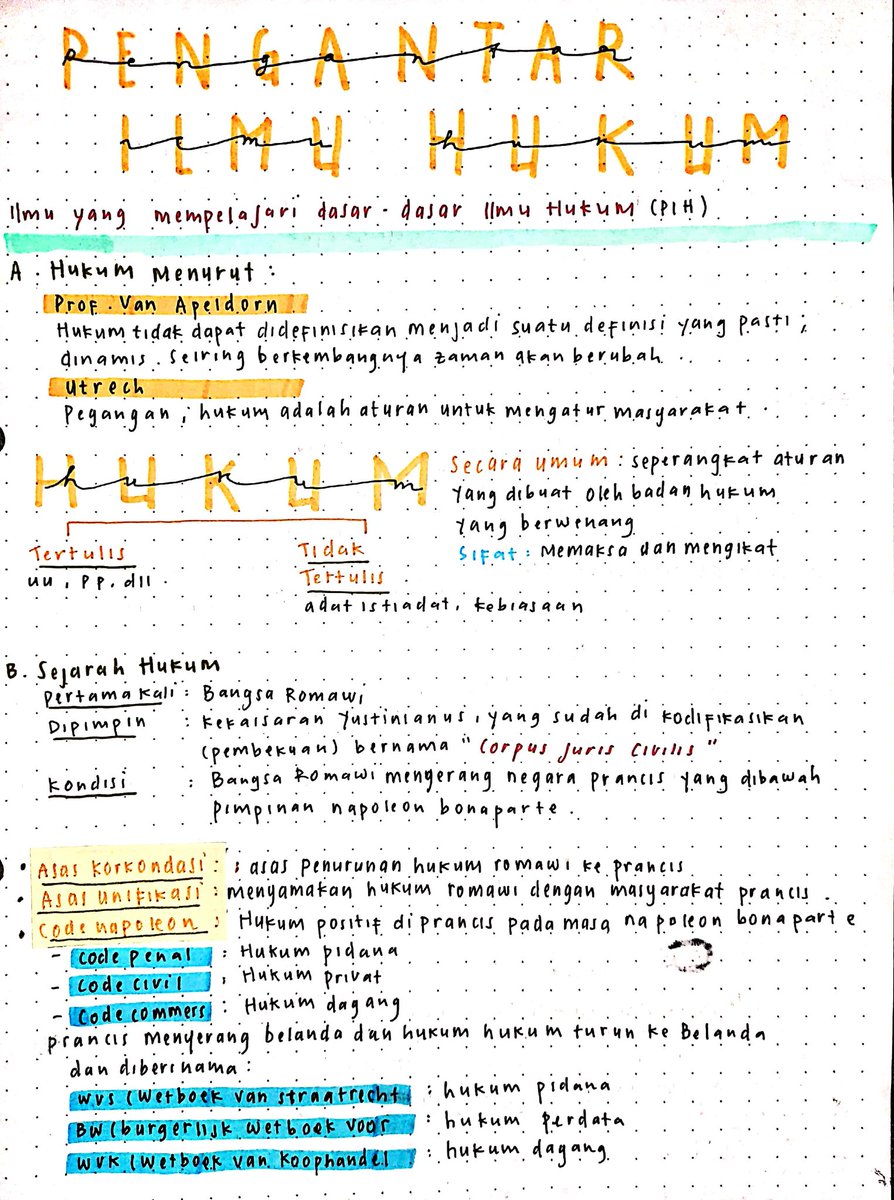 PENGANTAR
pengantar
ILMU HUKUM
ilmu hukum
Ilmu yang mempelajari dasar-dasar Ilmu Hukum (PIH)
A. Hukum Menurut :
Prof. Van Apeldorn
Hukum tidak dapat didefinisikan menjadi suatu definisi yang pasti ;
dinamis. Seiring berkembangnya zaman akan berubah.
Utrech
Pegangan ; hukum adalah aturan untuk mengatur masyarakat.
HUKUM
hukum
Secara umum : seperangkat aturan
yang dibuat oleh badan hukum
yang berwenang
Sifat : Memaksa dan mengikat
Tertulis
uu, PP. dll.
Tidak
Tertulis
adat istiadat, kebiasaan
B. Sejarah Hukum
Pertama kali : Bangsa Romawi
Dipimpin : kekaisaran Yustinianus, yang sudah di kodifikasikan
(pembekuan) bernama "Corpus Juris Civilis"
Kondisi : Bangsa Romawi menyerang negara prancis yang dibawah
pimpinan napoleon bonaparte.
• Asas korkondasi : ; asas penurunan hukum romawi ke prancis
• Asas unifikasi : menyamakan hukum romawi dengan masyarakat prancis.
• Code napoleon : Hukum positif di prancis pada masa napoleon bonaparte
- Code penal : Hukum pidana
- Code civil : Hukum privat
- Code commers : Hukum dagang
prancis menyerang belanda dan hukum hukum turun ke Belanda
dan diberi nama :
WVS (Wetboek van straatrecht : hukum pidana
BW (burgerlijk wetboek voor : hukum perdata
WVK (Wetboek van Koophandel : hukum dagang